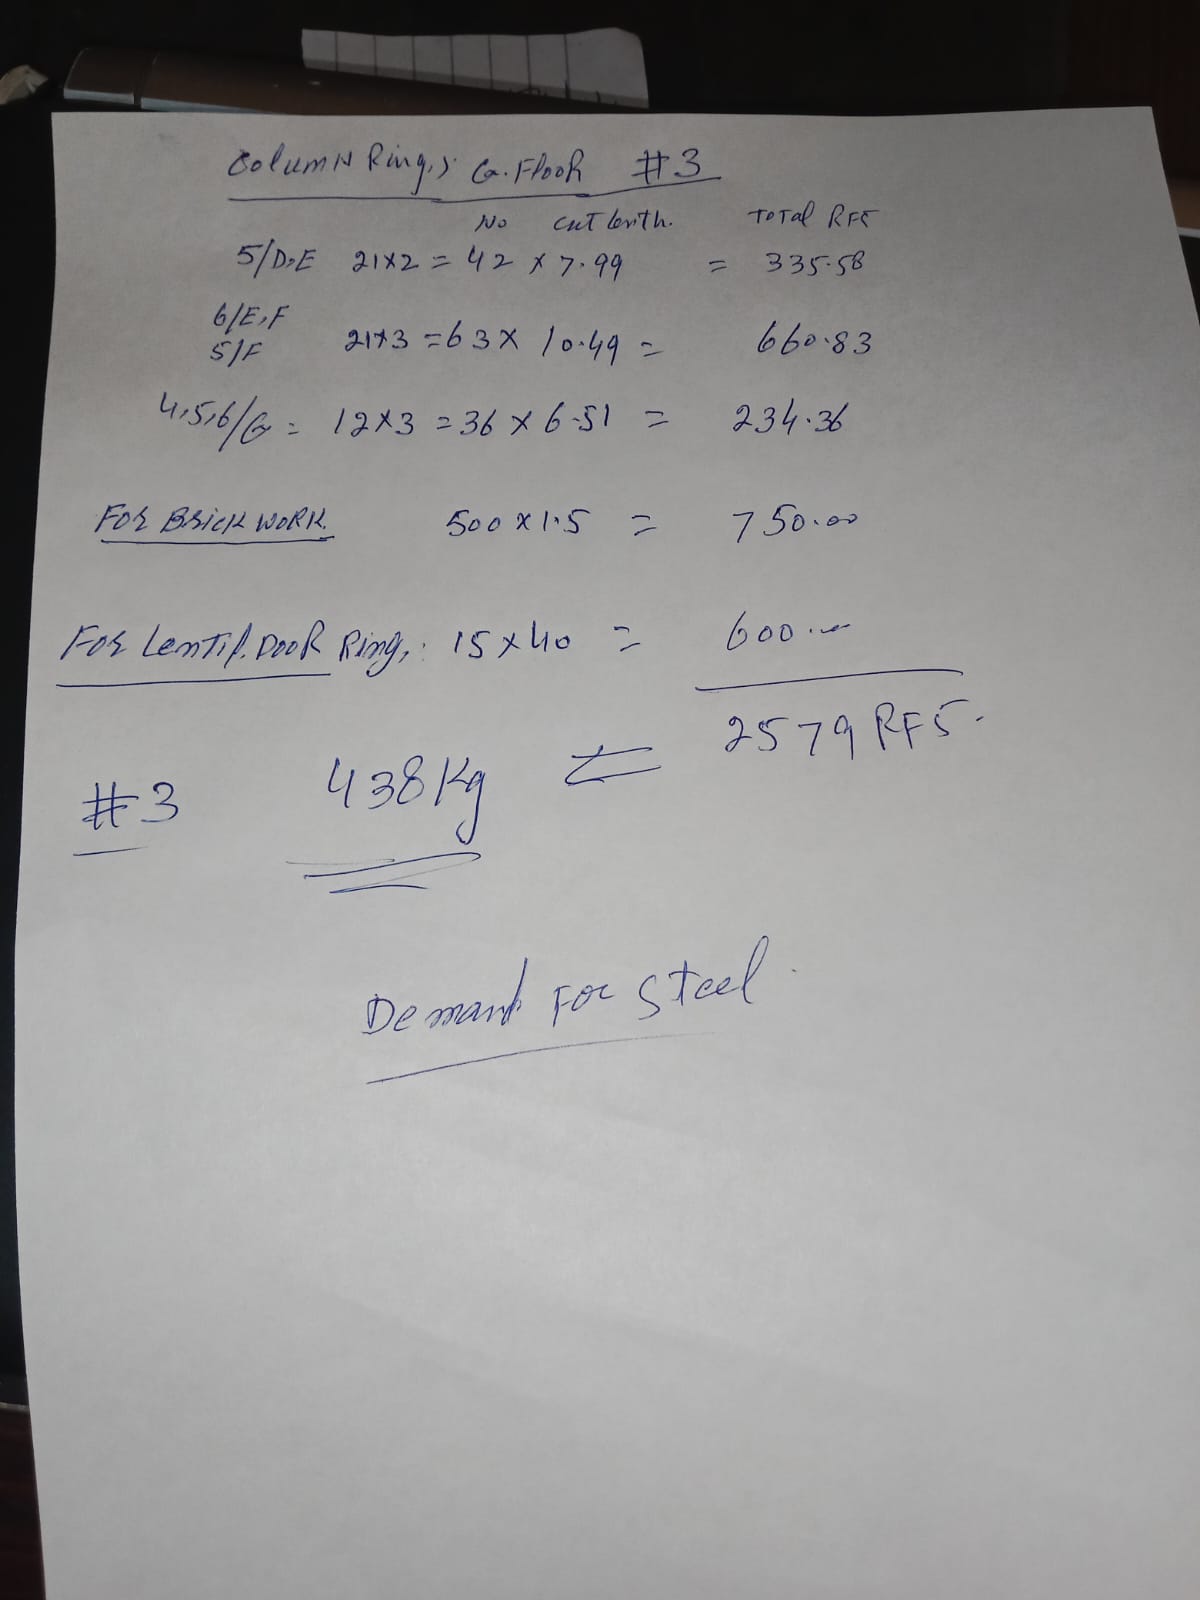 Column Rings G.Floor #3
No Cut lenth. Total RFt
5/D,E 21x2 = 42 x 7.99 = 335.58
6/E,F
5/F 21x3 = 63 x 10.49 = 660.83
4,5,6/G = 12x3 = 36 x 6.51 = 234.36
For Brick WORK. 500 x 1.5 = 750.00
For Lentil. Door Ring,: 15 x 40 = 600.00
2579 RFt.
#3 438 Kg =
Demand For Steel.